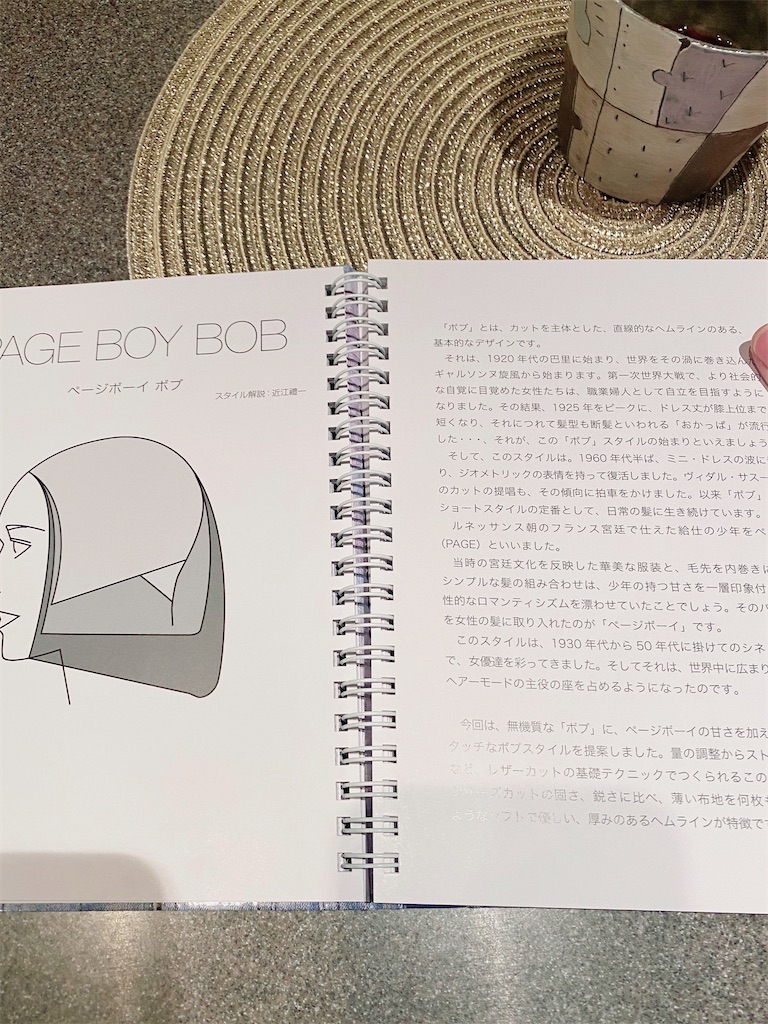 PAGE BOY BOB
ページボーイ ボブ
スタイル解説：近江禮一
「ボブ」とは、カットを主体とした、直線的なヘムラインのある、
基本的なデザインです。
それは、1920年代の巴里に始まり、世界をその渦に巻き込ん
ギャルソンヌ旋風から始まります。第一次世界大戦で、より社会的
な自覚に目覚めた女性たちは、職業婦人として自立を目指すように
なりました。その結果、1925年をピークに、ドレス丈が膝上位まで
短くなり、それにつれて髪型も断髪といわれる「おかっぱ」が流行
した・・・、それが、この「ボブ」スタイルの始まりといえましょう
そして、このスタイルは。1960年代半ば、ミニ・ドレスの波に
り、ジオメトリックの表情を持って復活しました。ヴィダル・サスー
のカットの提唱も、その傾向に拍車をかけました。以来「ボブ」
ショートスタイルの定番として、日常の髪に生き続けています。
ルネッサンス朝のフランス宮廷で仕えた給仕の少年をペ
（PAGE）といいました。
当時の宮廷文化を反映した華美な服装と、毛先を内巻きに
シンプルな髪の組み合わせは、少年の持つ甘さを一層印象付
性的なロマンティシズムを漂わせていたことでしょう。そのバ
を女性の髪に取り入れたのが「ページボーイ」です。
このスタイルは、1930年代から50年代に掛けてのシネ
で、女優達を彩ってきました。そしてそれは、世界中に広まり
ヘアーモードの主役の座を占めるようになったのです。
今回は、無機質な「ボブ」に、ページボーイの甘さを加え
タッチなボブスタイルを提案しました。量の調整からスト
など、レザーカットの基礎テクニックでつくられるこの
カットの固さ、鋭さに比べ、薄い布地を何枚も
ようなソフトで優しい、厚みのあるヘムラインが特徴で